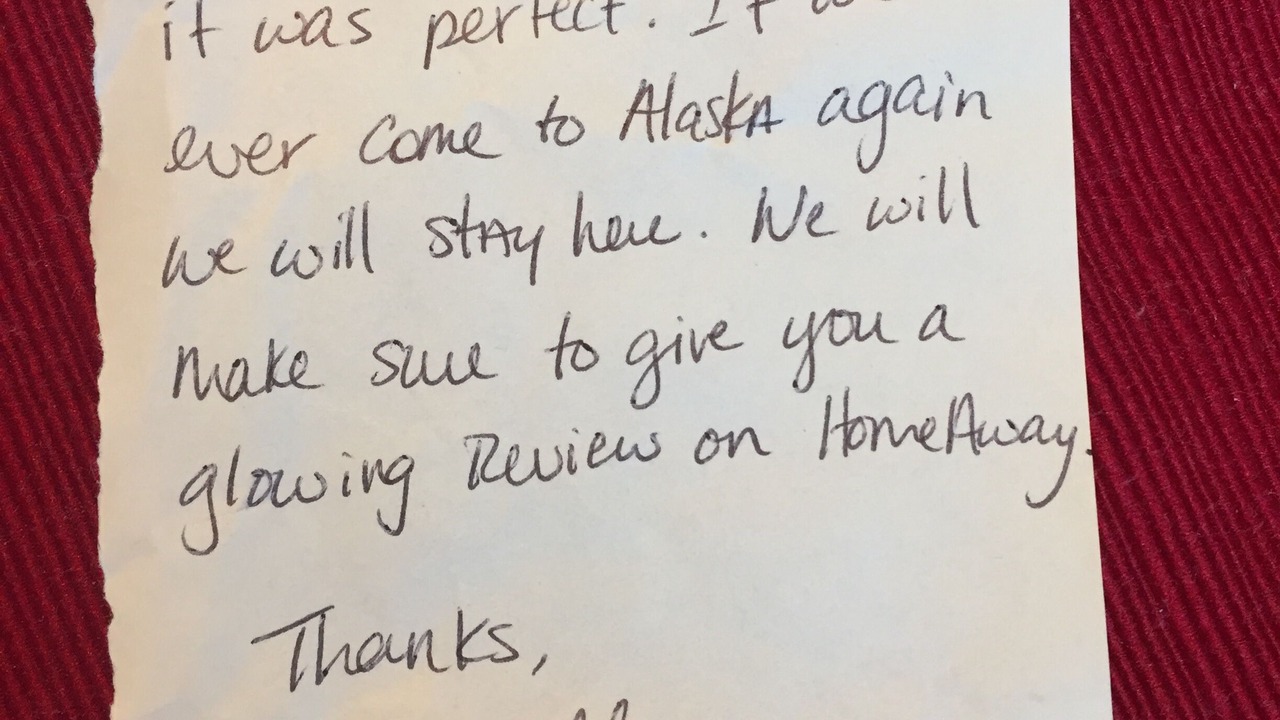 it was perfect. If we
ever come to Alaska again
we will stay here. We will
make sure to give you a
glowing Review on HomeAway.
Thanks,